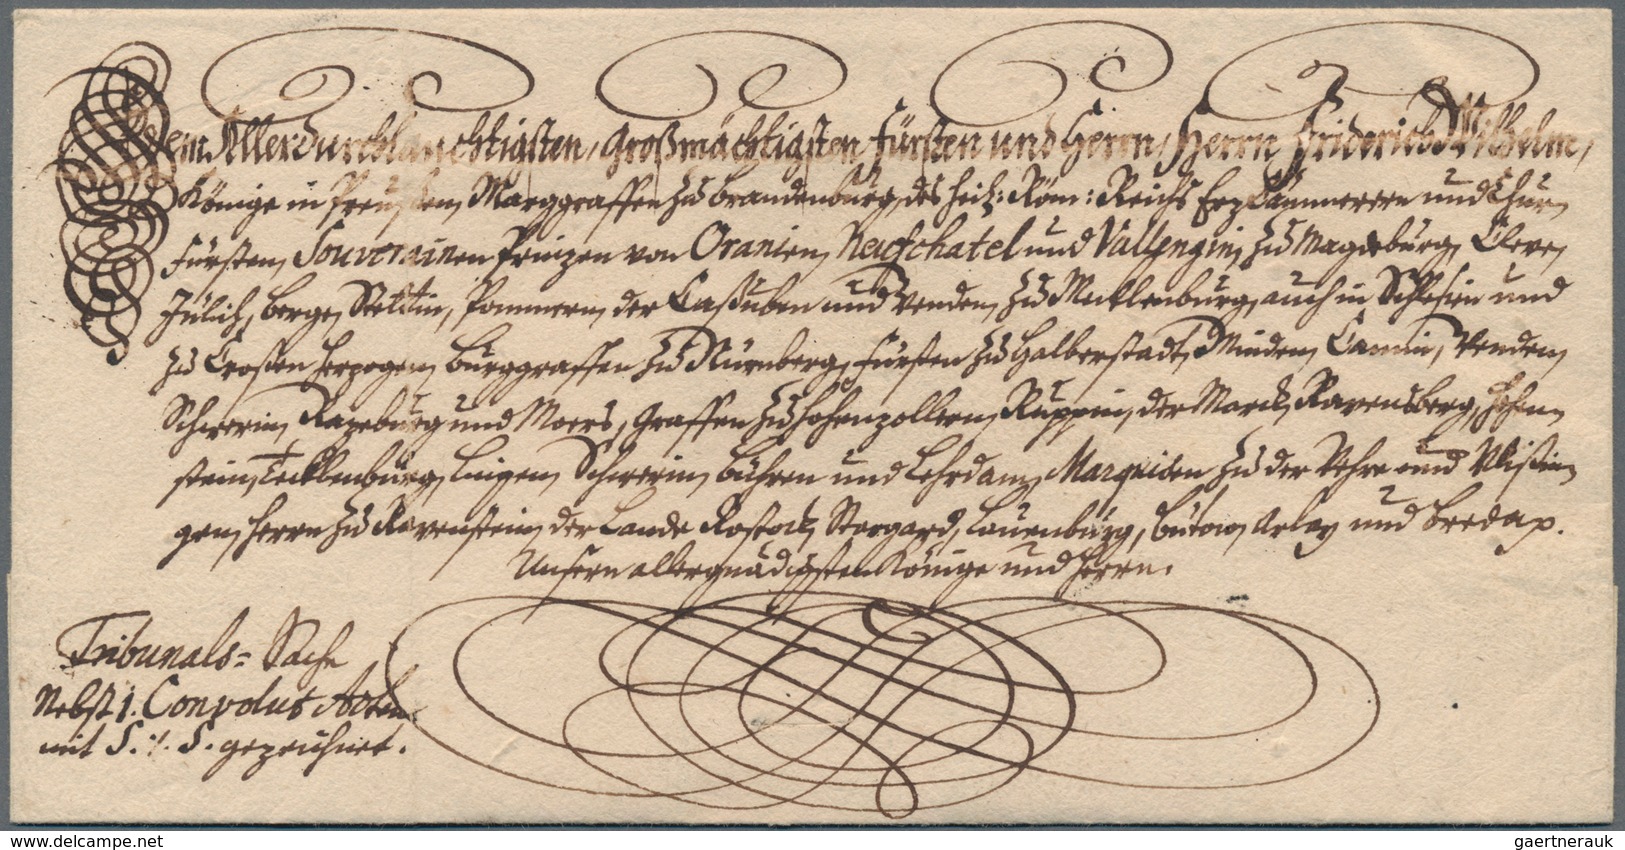 Dem Allerdurchlauchtigsten, Großmächtigsten Fürsten und Herrn, Herrn Friederich Wilhelm,
Könige in Preußen, Marggraffen zu Brandenburg, des heil: Röm: Reichs Ertz Cämmerern und Chur,
Fürsten, Souverainen Printzen von Oranien, Neufchatel und Vallengin, zu Magdeburg, Cleve,
Jülich, Berge, Stettin, Pommern, der Caßuben und Wenden, zu Mecklenburg, auch in Schlesien und
zu Croßen Hertzogen, Burggraffen zu Nürnberg, Fürsten zu Halberstadt, Minden, Camin, Wenden,
Schwerin, Ratzeburg und Moers, Graffen zu Hohenzollern, Ruppin, der Marck, Ravensberg, Hohen
stein, Tecklenburg, Lingen, Schwerin, Bühren und Lehrdam, Marquisen zu der Vehre und Vlißin
gen, Herrn zu Ravenstein, der Lande Rostock, Stargard, Lauenburg, Bütow, Arlay und Breda p.
Unsern allergnädigsten Könige und Herrn.
Tribunals=Sache
Nebst 1. Convolut Acten
mit S. :/. S. gezeichnet.
www.delcampe.net
gaertnerauk